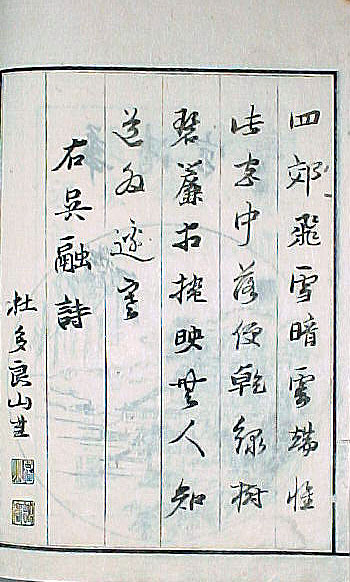 四郊飛雪暗雲端惟
此宮中落便乾綠樹
碧簷相掩映無人知
道外邊寒
右吳融詩
杜多良山生